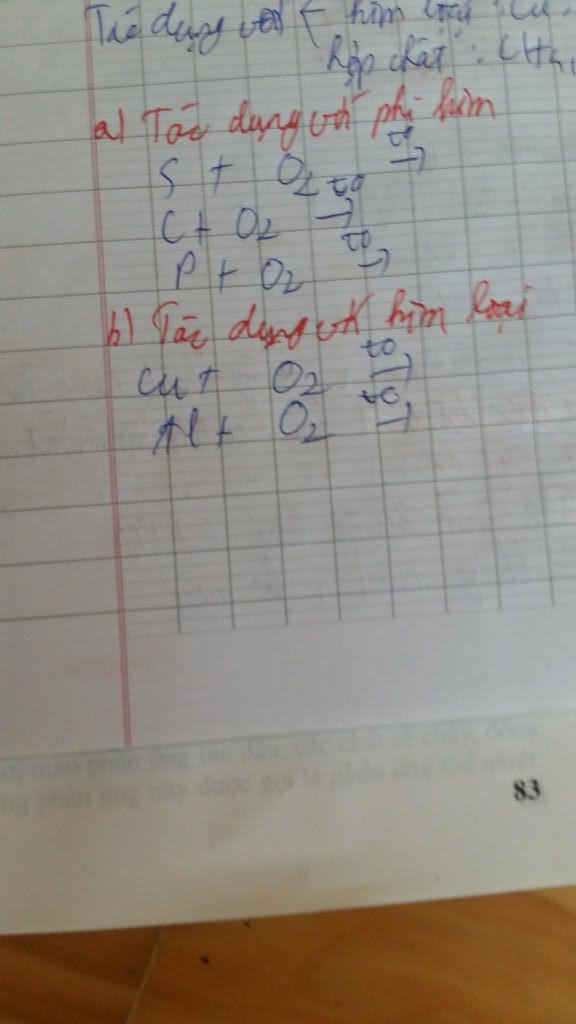 Tác dụng với { kim loại : Cu
hợp chất : CH4,
a) Tác dụng với phi kim
S + O2 t0 →
C + O2 t0 →
P + O2 t0 →
b) Tác dụng với kim loại
Cu + O2 t0 →
Al + O2 t0 →
mão phản ứng lúc đầu, các chất sẽ cháy, đồng
ng phản ứng này được gọi là phản ứng toả nhiệt
83